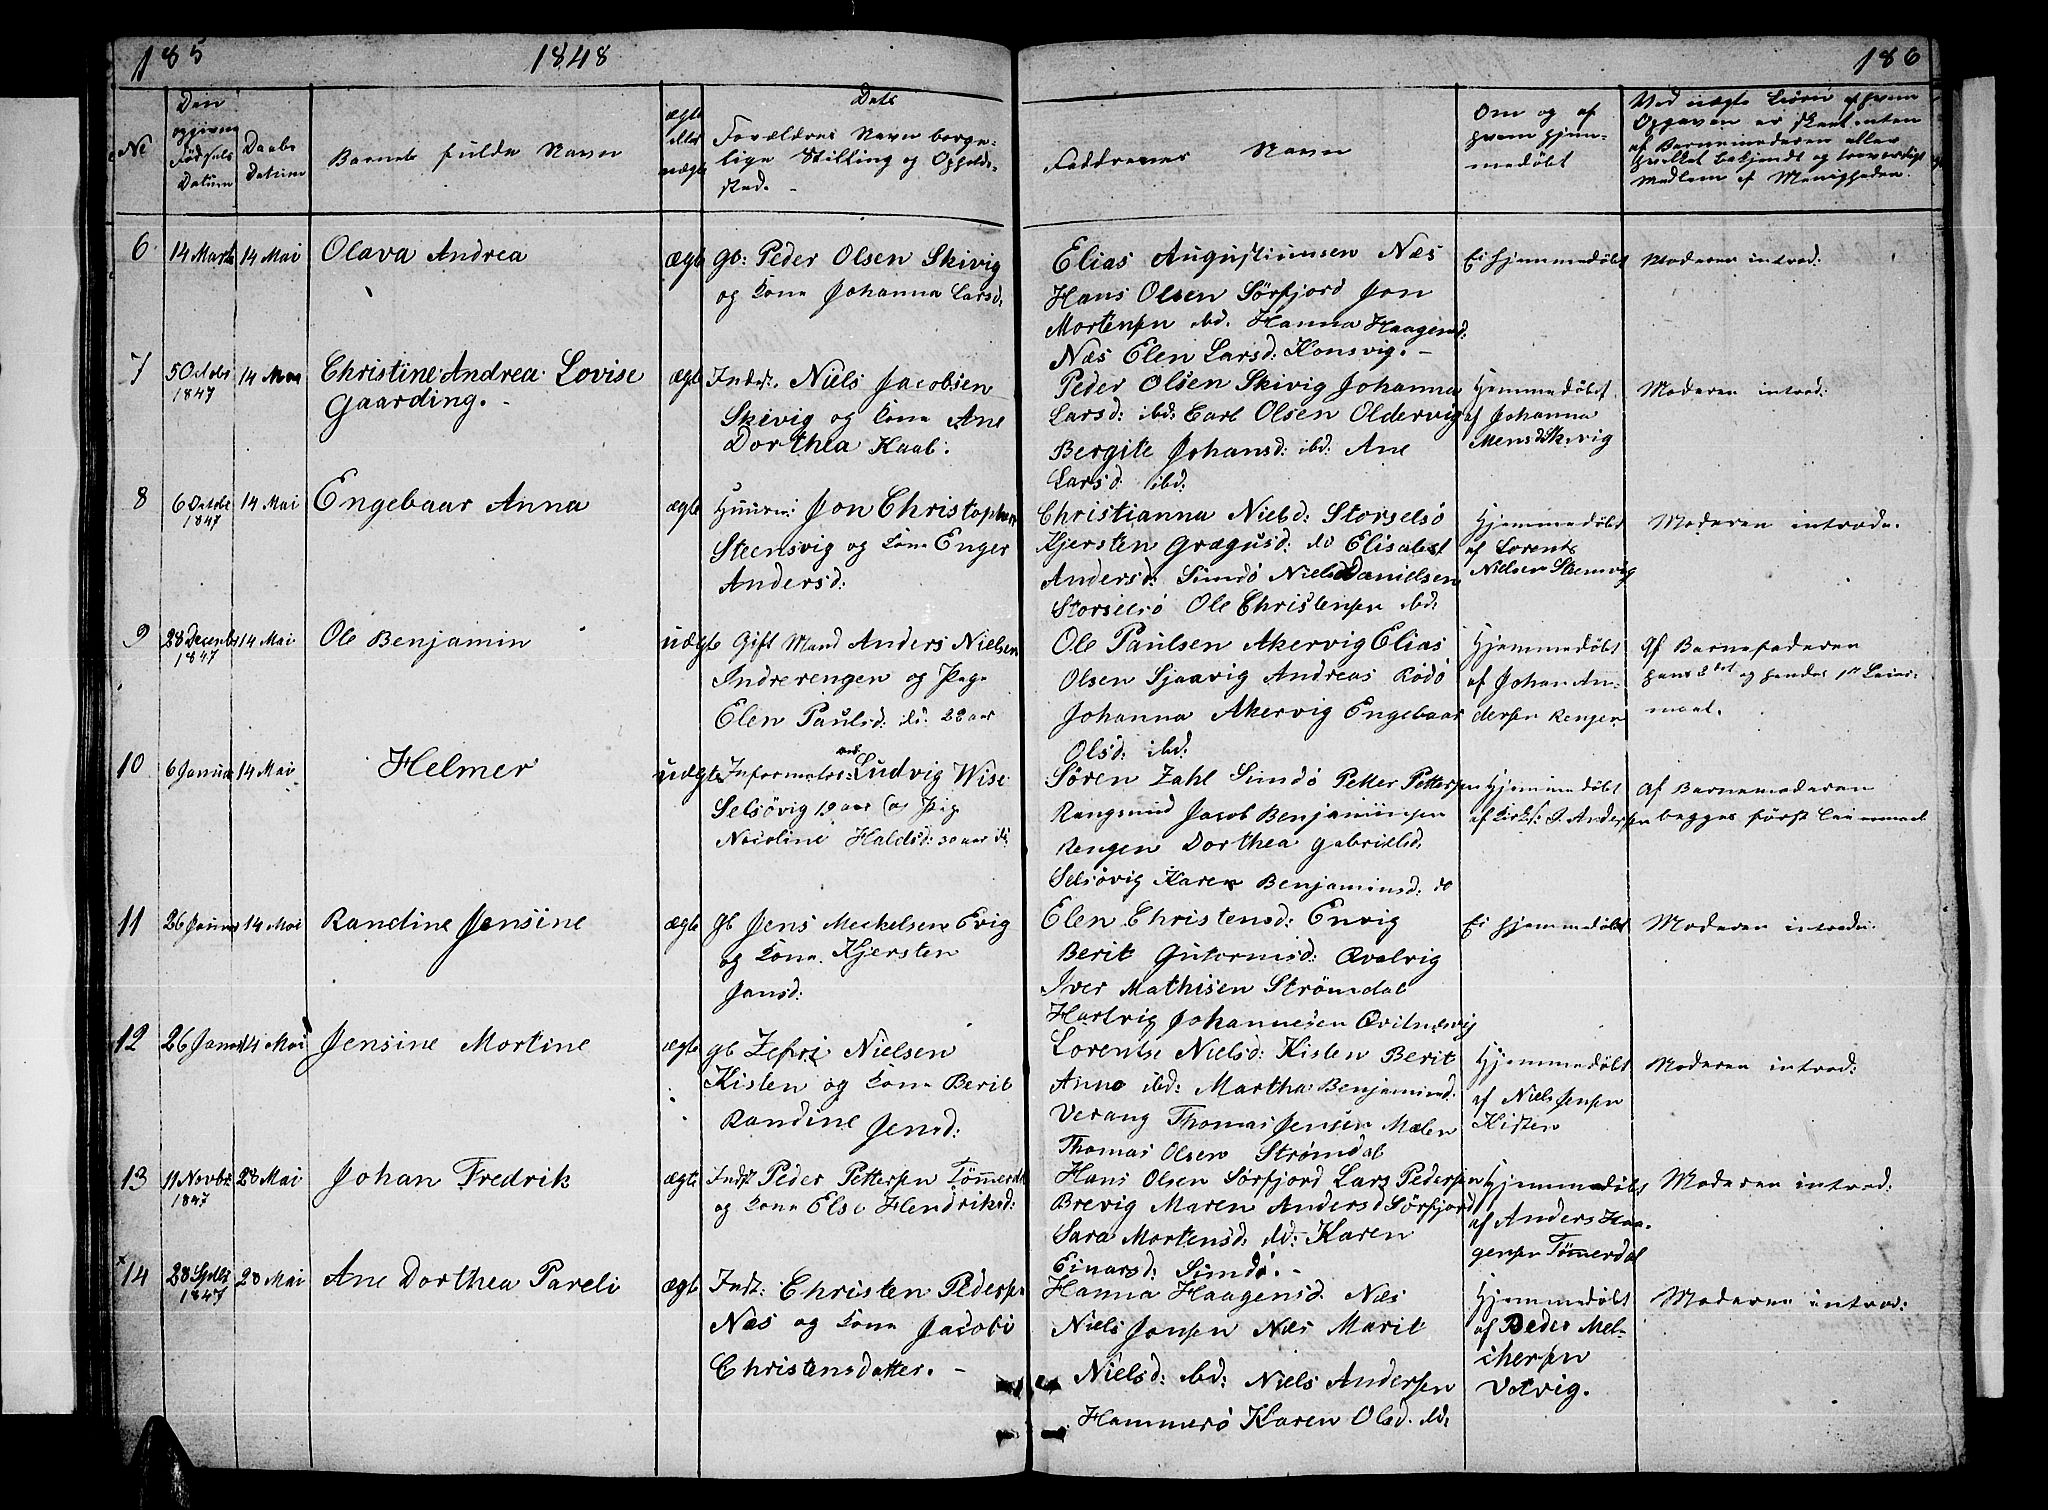 185
1848
186
No
Den
opgivne
Fødsels
Datum
Daabs
Datum
Barnets fulde Navn
ægte
eller
uægte
Dets
Forældres Navn borge-
lige Stilling og Opholds-
sted. -
Faddrenes Navn
Om og af
hvem hjem-
medöbt
Ved uægte Børn af hvem
Opgaven er skeet enten
af Barnemoderen eller
hvilket bekjendt og troværdigt
Medlem af Menigheden.
6 14 Marts 14 Mai Olava Andrea ægte gb: Peder Olsen Skivig
og Kone Johanna Larsd:
Elias Augustinusen Næs
Hans Olsen Sörfjord Jon
Mortensen ibd. Hanna Haagensd:
Næs Elen Larsd: Konsvig. -
Ei hjemmedøbt
Moderen introd:
7 5 Octobr 1847 14 Mai Christine Andrea Lovise
Gaarding. -
ægte Indst. Niels Jacobsen
Skivig og Kone Ane
Dorthea Kaal.
Peder Olsen Skivig Johanna
Larsd: ibd: Carl Olsen Oldervig
Bergite Johansd: ibd: Ane
Larsd ibd:
Hjemmedöbt
af Johanna
Skivig
Moderen introd:
8 6 Octobr 1847 14 Mai Engebaar Anna
ægte Huusm: Jon Christophers
Steensvig og Kone Enger
Andersd:
Christianna Nielsd: Storselsö
Kjersten Grægusd: do Elisabet
Andersd: Simdö Niels Danielsen
Storselsö Ole Christensen ibd:
Hjemmedöbt
af Lorents
Nielsen Stensvig
Moderen introd.
9 28 Decembr 1847 14 Mai Ole Benjamin
uægte Gift Mand Anders Nielsen
Indrerengen og Pige
Elen Paulsd. do: 22 aar
Ole Paulsen Akervig Elias
Olsen Sjaavig Andreas Rödö
Johanna Akervig Engebaar
Olsd: ibd:
Hjemmedöbt
af Johan An-
dersen Rengen
Af Barnefaderen
hans 2det og hendes 1ste Leier-
maal.
10 6 Januar 14 Mai Helmer
uægte Ludvig Wise
Selsövig 19 aar og Pig
Nicoline Haldsd: 30 aar do:
Sören Zahl Simdö Petter Pettersen
Rangsund Jacob Benjaminsen
Rengen Dorthea Gabrielsd:
Selsövig Karen Benjaminsd: do
Hjemmedöbt
af Kirks: J. Andersen
Af Barnemoderen
begges först Leiermaal
11 26 Januar 14 Mai Randine Jensine
ægte gb Jens Meckelsen Evig
og Kone Kjersten
Jansd:
Elen Christensd: Envig
Berit Gutormsd: Qvalvig
Iver Mathisen Strömdal
Hartvig Johannesen
Ei hjemmedöbt
Moderen introd:
12 26 Januar 14 Mai Jensine Mortine
ægte gb Zefri Nielsen
Kisten og Kone Berit
Randine Jensd:
Lorentse Nielsd: Kisten Berit
Anna ibd: Martha Benjaminsd.
Verang Thomas Jensen Mælen
Thomas Olsen Strömdal
Hjemmedöbt
af Niels Jensen
Kisten
Moderen introd:
13 11 Novbr 1847 28 Mai Johan Fredrik
ægte Indst Peder Pettersen Tömerdal
og Kone Else Hendriksd:
Hans Olsen Sörfjord Lars Pedersen
Brevig Maren Andersd Sörfjord
Sara Mortensd: do: Karen
Einarsd: Simdö. -
Hjemmedöbt
af Anders Haa-
gensen Tömerdal
Moderen introd:
14 28 Septbr 1847 28 Mai Ane Dorthea Pareli
ægte Indst: Christen Pedersen
Næs og Kone Jacobi
Christensdatter. -
Hanna Haagensd. Næs
Niels Jonsen Næs Marit
Nielsd: ibd: Niels Andersen
Hammerö Karen Olsd. do:
Hjemmedöbt
af Peder Mel-
chersen
Votvig.
Moderen introd: